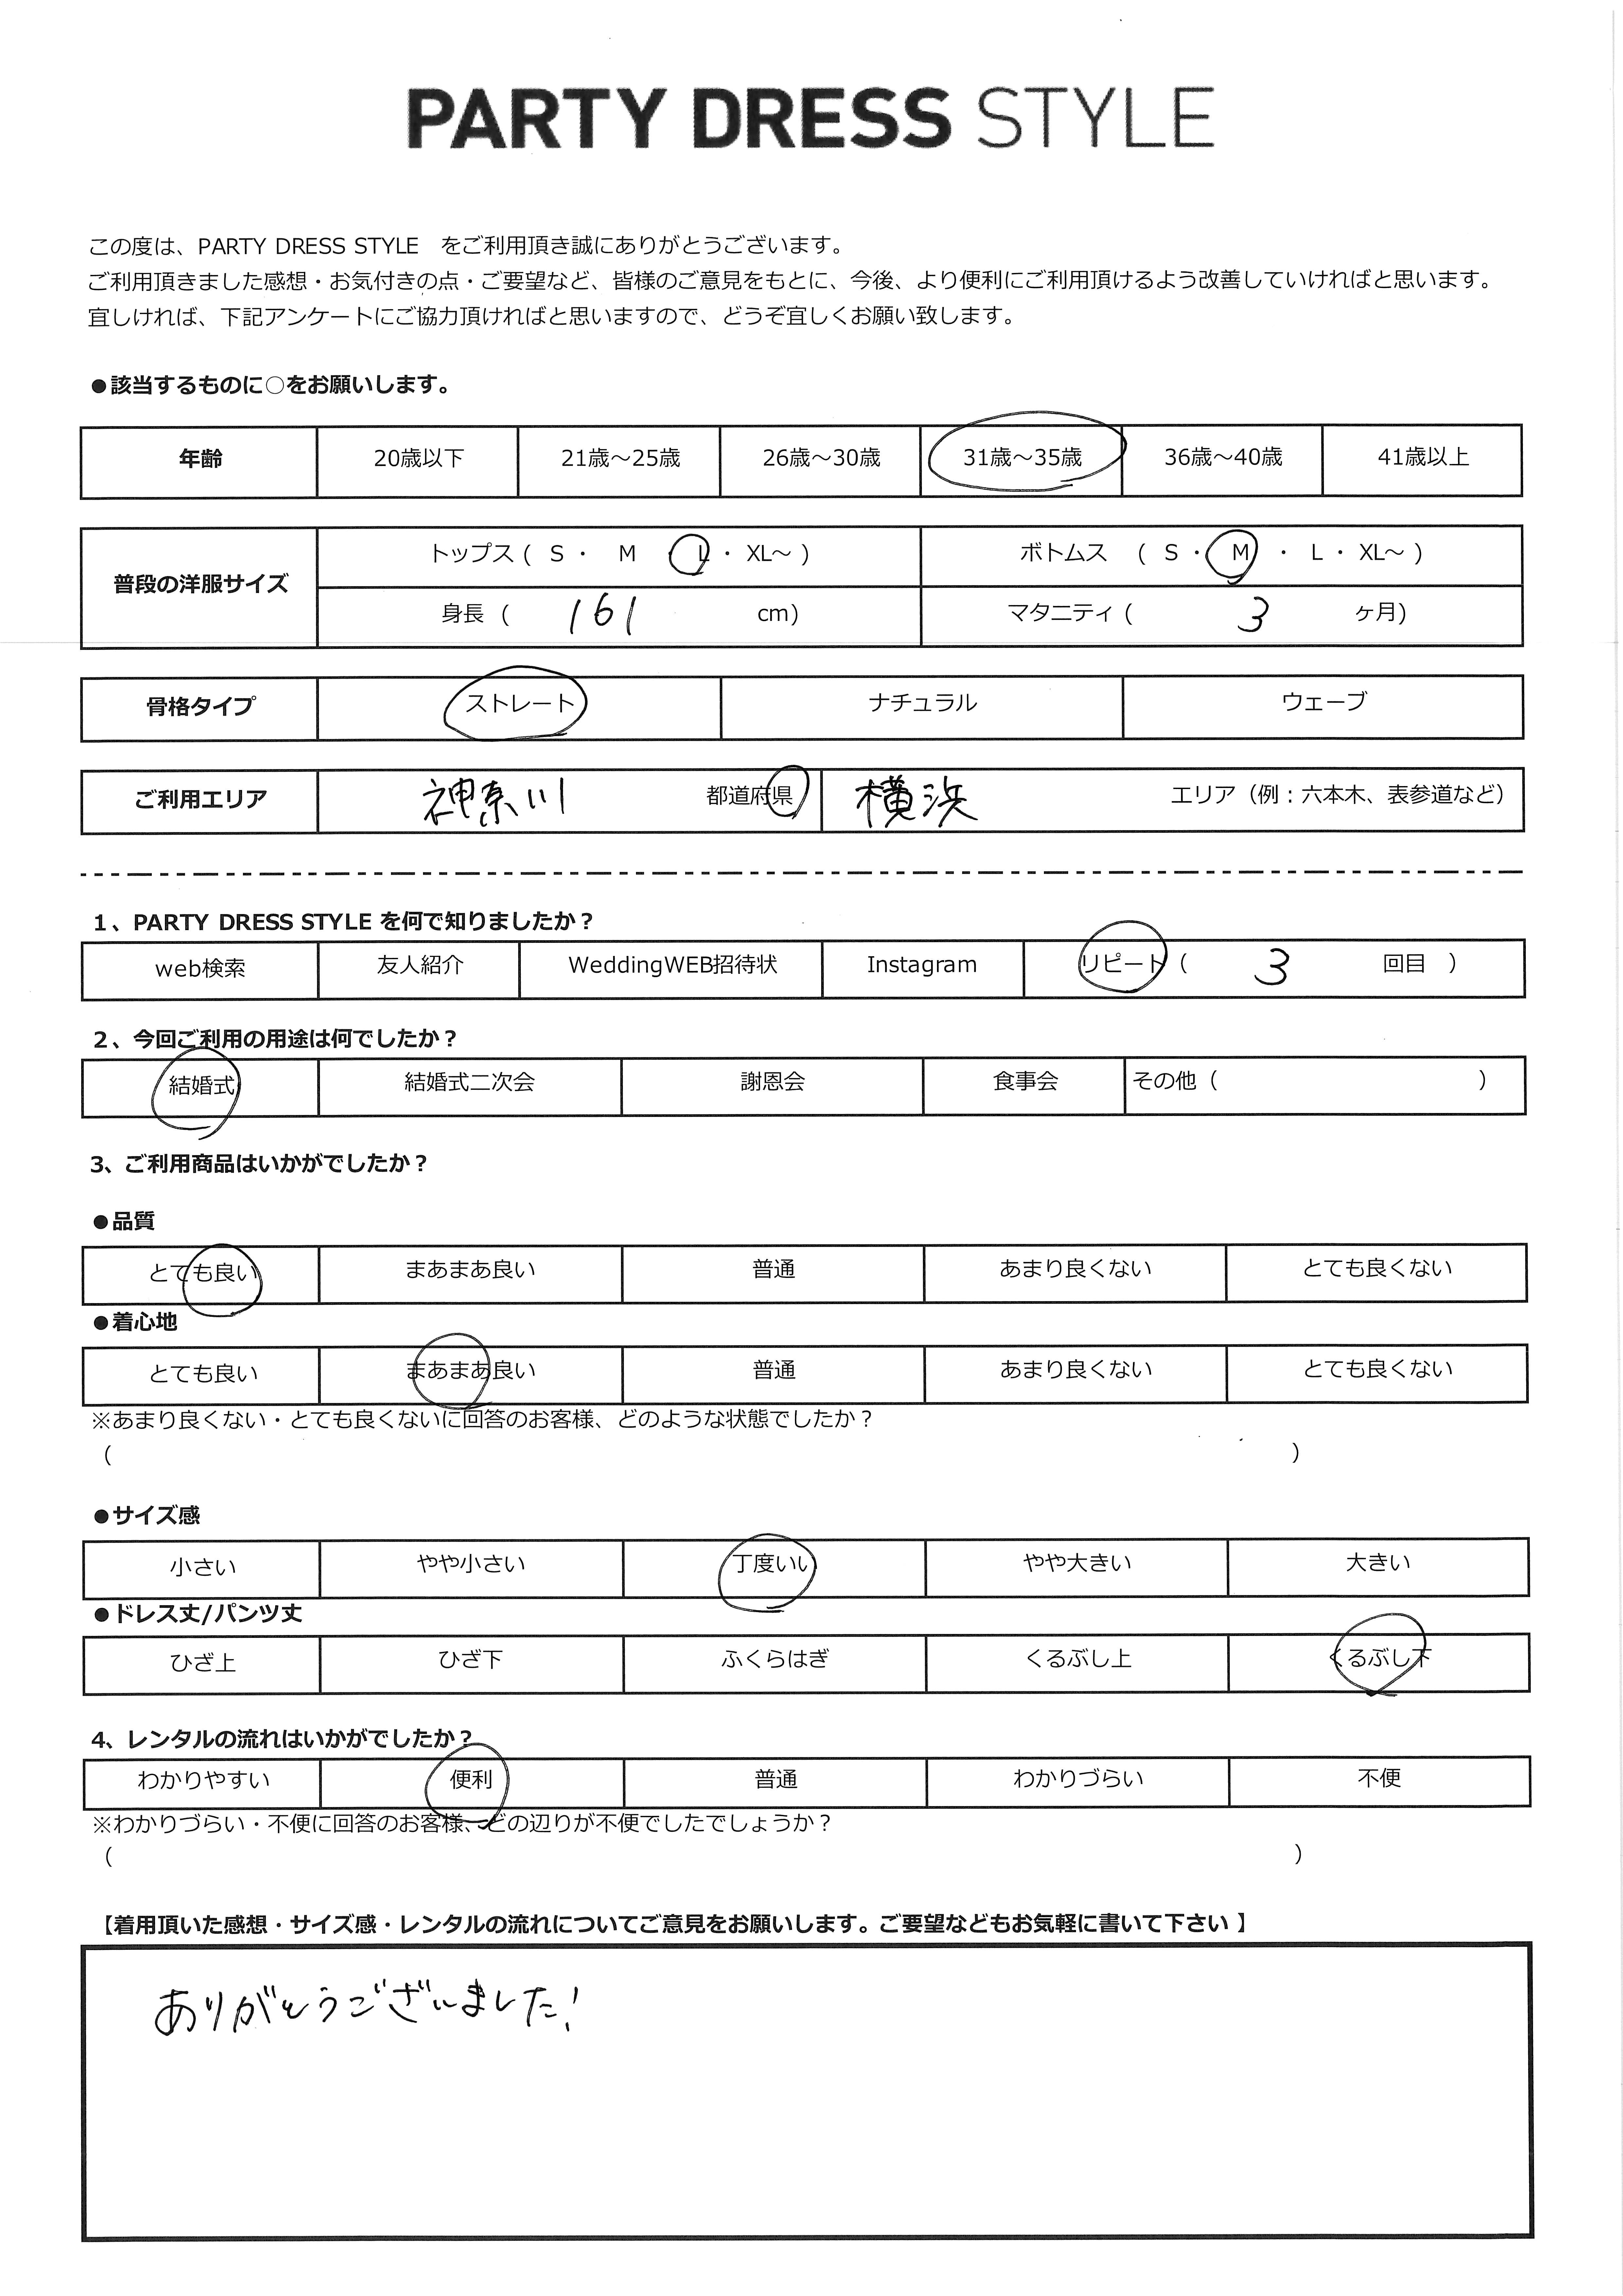 PARTY DRESS STYLE
この度は、PARTY DRESS STYLE　をご利用頂き誠にありがとうございます。
ご利用頂きました感想・お気付きの点・ご要望など、皆様のご意見をもとに、今後、より便利にご利用頂けるよう改善していければと思います。
宜しければ、下記アンケートにご協力頂ければと思いますので、どうぞ宜しくお願い致します。
●該当するものに○をお願いします。
年齢 20歳以下 21歳～25歳 26歳～30歳 31歳～35歳 36歳～40歳 41歳以上
普段の洋服サイズ トップス ( S ・ M ・ L ・ XL～ ) ボトムス ( S ・ M ・ L ・ XL～ )
身長 ( 161 cm) マタニティ ( 3 ヶ月)
骨格タイプ ストレート ナチュラル ウェーブ
ご利用エリア 神奈川 都道府県 横浜 エリア（例：六本木、表参道など）
1、PARTY DRESS STYLE を何で知りましたか？
web検索 友人紹介 WeddingWEB招待状 Instagram リピート（ 3 回目 ）
2、今回ご利用の用途は何でしたか？
結婚式 結婚式二次会 謝恩会 食事会 その他（ ）
3、ご利用商品はいかがでしたか？
●品質
とても良い まあまあ良い 普通 あまり良くない とても良くない
●着心地
とても良い まあまあ良い 普通 あまり良くない とても良くない
※あまり良くない・とても良くないに回答のお客様、どのような状態でしたか？
（ ）
●サイズ感
小さい やや小さい 丁度いい やや大きい 大きい
●ドレス丈/パンツ丈
ひざ上 ひざ下 ふくらはぎ くるぶし上 くるぶし下
4、レンタルの流れはいかがでしたか？
わかりやすい 便利 普通 わかりづらい 不便
※わかりづらい・不便に回答のお客様、どの辺りが不便でしたでしょうか？
（ ）
【着用頂いた感想・サイズ感・レンタルの流れについてご意見をお願いします。ご要望などもお気軽に書いて下さい 】
ありがとうございました！